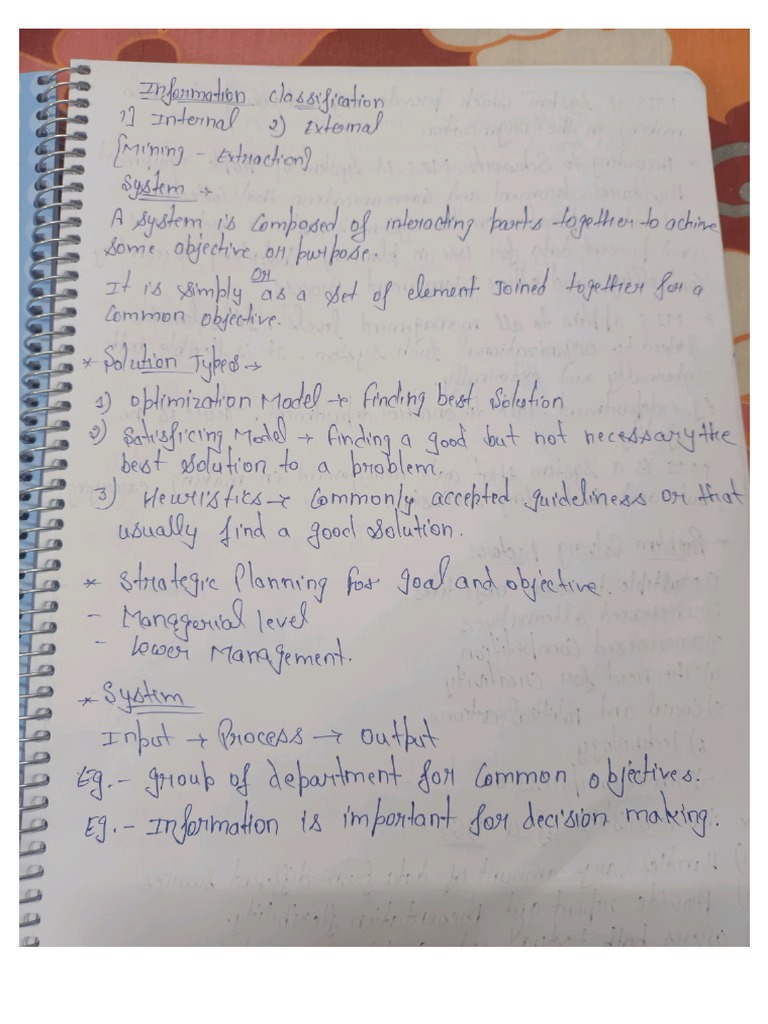 Information Classification
1] Internal 2) External
[Mining - Extraction]
System →
A system is composed of interacting parts together to achive
some objective or purpose.
or
It is simply as a set of element joined together for a
Common objective.
* Solution Types →
1) Optimization Model → Finding best solution
2) Satisficing Model → Finding a good but not necessary the
best solution to a problem.
3) Heuristics → Commonly accepted guideliness or that
usually find a good solution.
* Strategic Planning for goal and objective.
- Managerial level
- Lower Management.
* System
Input → Process → Output
Eg. - group of department for common objectives.
Eg. - Information is important for decision making.